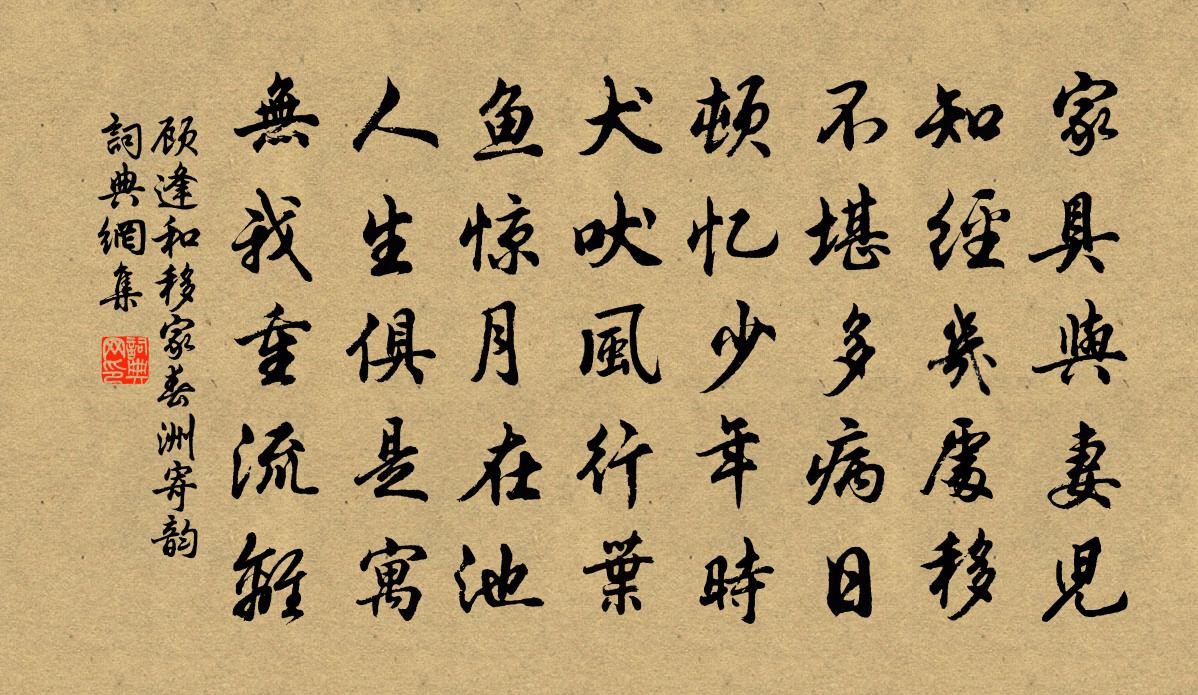 家具與妻児
知經幾處移
不堪多病日
頓忆少年時
犬吠風行葉
鱼惊月在池
人生俱是寓
無我重流離
顾逢和移家春洲寄韵
詞典網集
詞典
网印